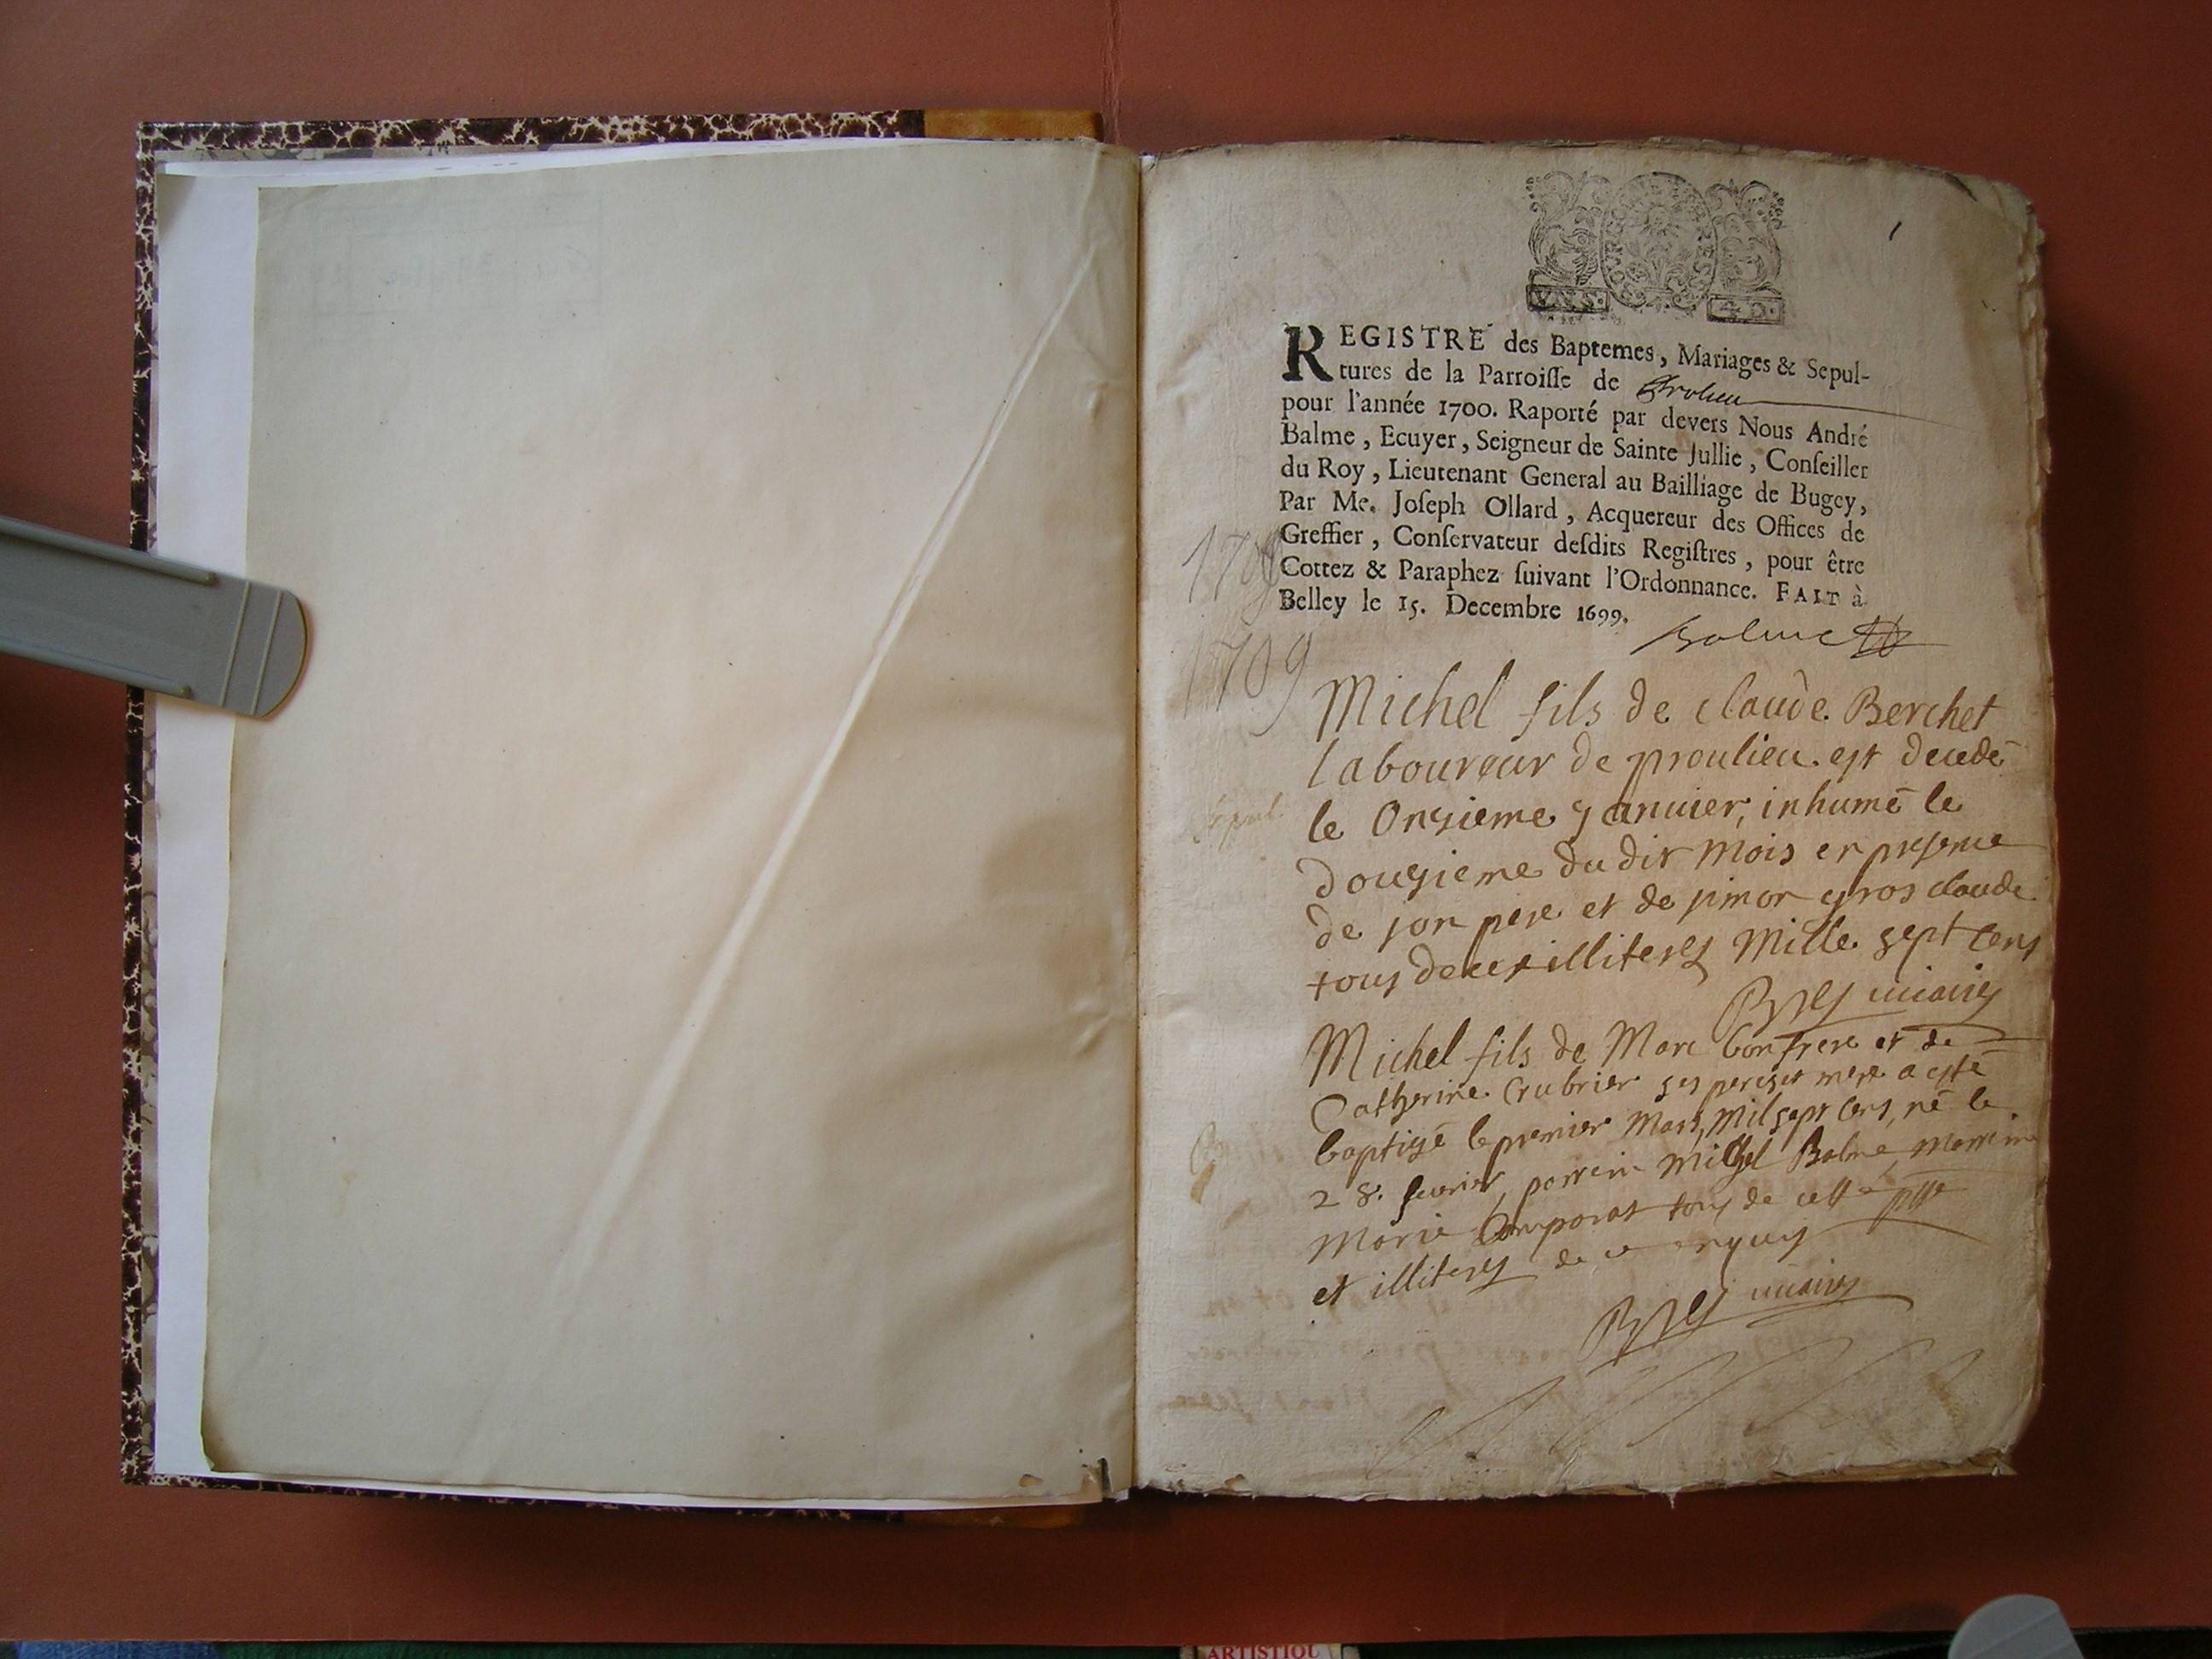 1
BOURGOGNE ET BRESSE
REGISTRE des Baptemes, Mariages & Sepul-
tures de la Parroisse de Prolieu
pour l'année 1700. Raporté par devers Nous André
Balme, Ecuyer, Seigneur de Sainte Jullie, Conseiller
du Roy, Lieutenant General au Bailliage de Bugey,
Par Me. Joseph Ollard, Acquereur des Offices de
Greffier, Conservateur desdits Registres, pour être
Cottez & Paraphez suivant l'Ordonnance. FAIT à
Belley le 15. Decembre 1699.
Balme
1709
Michel fils de claude Berchet
laboureur de proulieu est decedé
le Onzieme Januier, inhumé le
douzieme dudit mois en presence
de son pere et de simon gros claude
tous deux illiterez Mille sept cens
uicaire
Michel fils de Marc bonfrere et de
Catherine Crubrier ses peres et mere a esté
baptizé le premier Mars, Mil sept cens, né le
28. feurier, parrein Michel Balme, marrine
Marie Comparat tous de cette psse
et illiterez de ce enquis
uicaire
ARTISTIQU